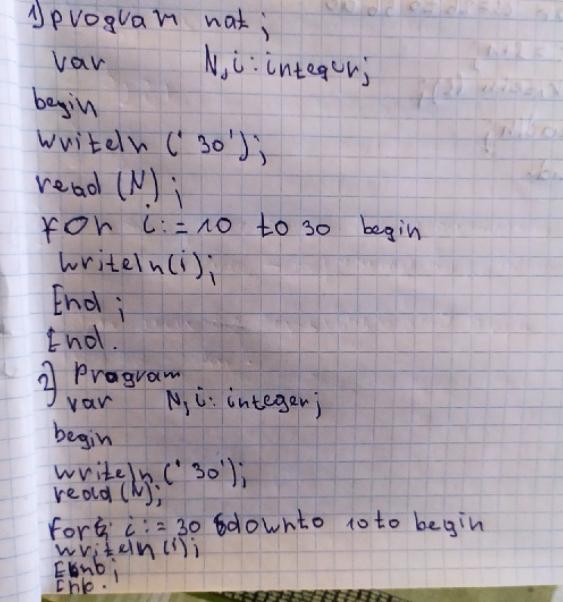 1) program nat;
var N,i: integer;
begin
writeln (' 30');
read (N);
for i:= 10 to 30 begin
writeln(i);
End;
End.
2) Pragram
var N,i: integer;
begin
writeln (' 30');
read (N);
for i:= 30 downto 10 to begin
writeln (i);
Enb;
Enb.